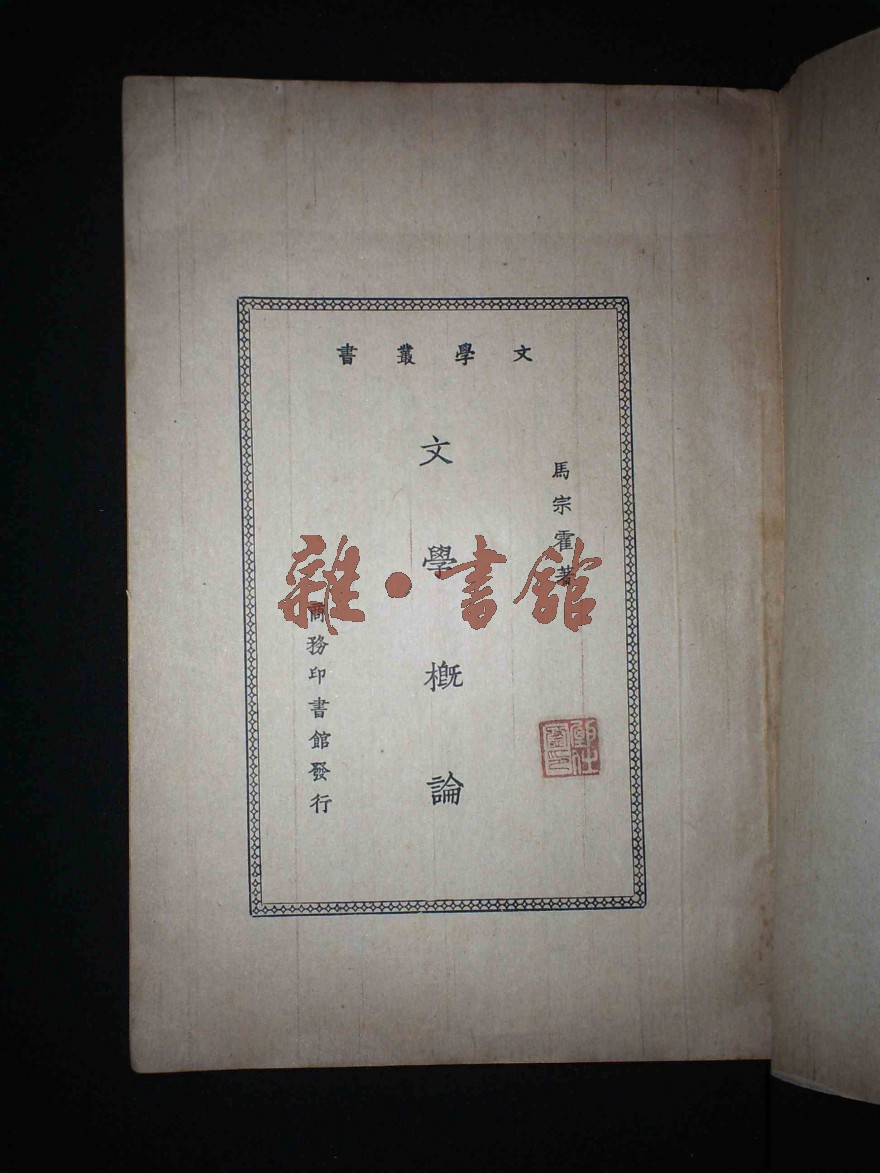 文學叢書
馬宗霍著
文學概論
商務印書館發行
雜·書館